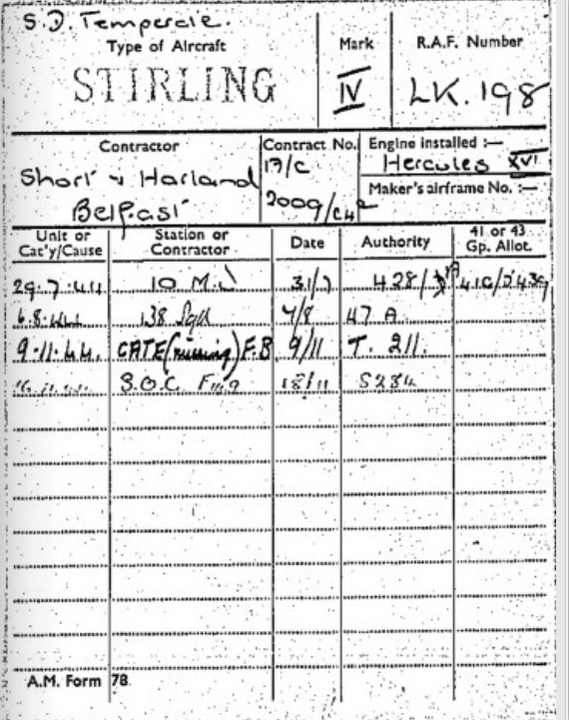 S.D. Temperate.
Type of Aircraft
STIRLING
Mark
IV
R.A.F. Number
LK.198
Contractor
Short & Harland
Belfast
Contract No.
Engine installed :—
Hercules XVI
Maker's airframe No. :—
Unit or Cat'y/Cause
Station or Contractor
Date
Authority
41 or 43 Gp. Allot.
29.7.44 10 M.U 31/7
6.8.44 138 Sqd 7/8 47 A
9.11.44. CATE (missing) F.B 9/11 T. 211.
S.O.C. 18/11 S284
A.M. Form 78